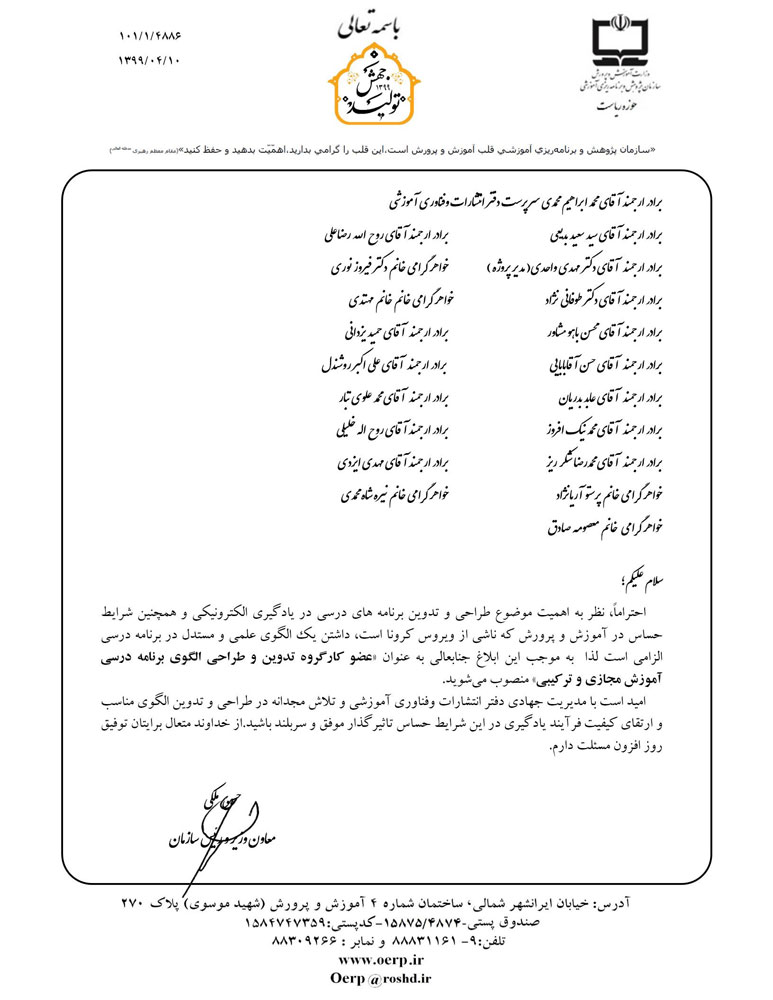 باسمه تعالی
۱۰۱/۱/۴۸۸۶
۱۳۹۹/۰۴/۱۰
جهش تولید ۱۳۹۹
وزارت آموزش و پرورش
سازمان پژوهش و برنامه‌ریزی آموزشی
حوزه ریاست
«سازمان پژوهش و برنامه‌ریزي آموزشي قلب آموزش و پرورش است،این قلب را گرامي بدارید،اهمّیّت بدهید و حفظ کنید»(مقام معظم رهبری)
برادر ارجمند آقای محمد ابراهیم محمدی سرپرست دفتر انتشارات و فناوری آموزشی
برادر ارجمند آقای سید سعید بدیعی برادر ارجمند آقای روح الله رضاعلی
برادر ارجمند آقای دکتر مهدی واحدی(مدیر پروژه) خواهر گرامی خانم دکتر فیروز نوری
برادر ارجمند آقای دکتر طوفانی نژاد خواهر گرامی خانم خانم مهتدی
برادر ارجمند آقای محسن باهو مشاور برادر ارجمند آقای حمید یزدانی
برادر ارجمند آقای حسن آقابابایی برادر ارجمند آقای علی اکبر روشندل
برادر ارجمند آقای عابد بدریان برادر ارجمند آقای محمد علوی تبار
برادر ارجمند آقای محمد نیک افروز برادر ارجمند آقای روح اله خلیلی
برادر ارجمند آقای محمدرضا شکر ریز برادر ارجمند آقای مهدی ایزدی
خواهر گرامی خانم پرستو آریانژاد خواهر گرامی خانم نیره شاه محمدی
خواهر گرامی خانم معصومه صادق
سلام علیکم؛
احتراماً، نظر به اهمیت موضوع طراحی و تدوین برنامه های درسی در یادگیری الکترونیکی و همچنین شرایط
حساس در آموزش و پرورش که ناشی از ویروس کرونا است، داشتن یک الگوی علمی و مستدل در برنامه درسی
الزامی است لذا به موجب این ابلاغ جنابعالی به عنوان «عضو کارگروه تدوین و طراحی الگوی برنامه درسی
آموزش مجازی و ترکیبی» منصوب می‌شوید.
امید است با مدیریت جهادی دفتر انتشارات وفناوری آموزشی و تلاش مجدانه در طراحی و تدوین الگوی مناسب
و ارتقای کیفیت فرآیند یادگیری در این شرایط حساس تاثیرگذار موفق و سربلند باشید.از خداوند متعال برایتان توفیق
روز افزون مسئلت دارم.
ملکی
معاون وزیر و رئیس سازمان
آدرس: خیابان ایرانشهر شمالی، ساختمان شماره ۴ آموزش و پرورش (شهید موسوی) پلاک ۲۷۰
صندوق پستی-۱۵۸۷۵/۴۸۷۴-کدپستی:۱۵۸۴۷۴۷۳۵۹
تلفن:۹- ۸۸۸۳۱۱۶۱ و نمابر : ۸۸۳۰۹۲۶۶
www.oerp.ir
Oerp @roshd.ir